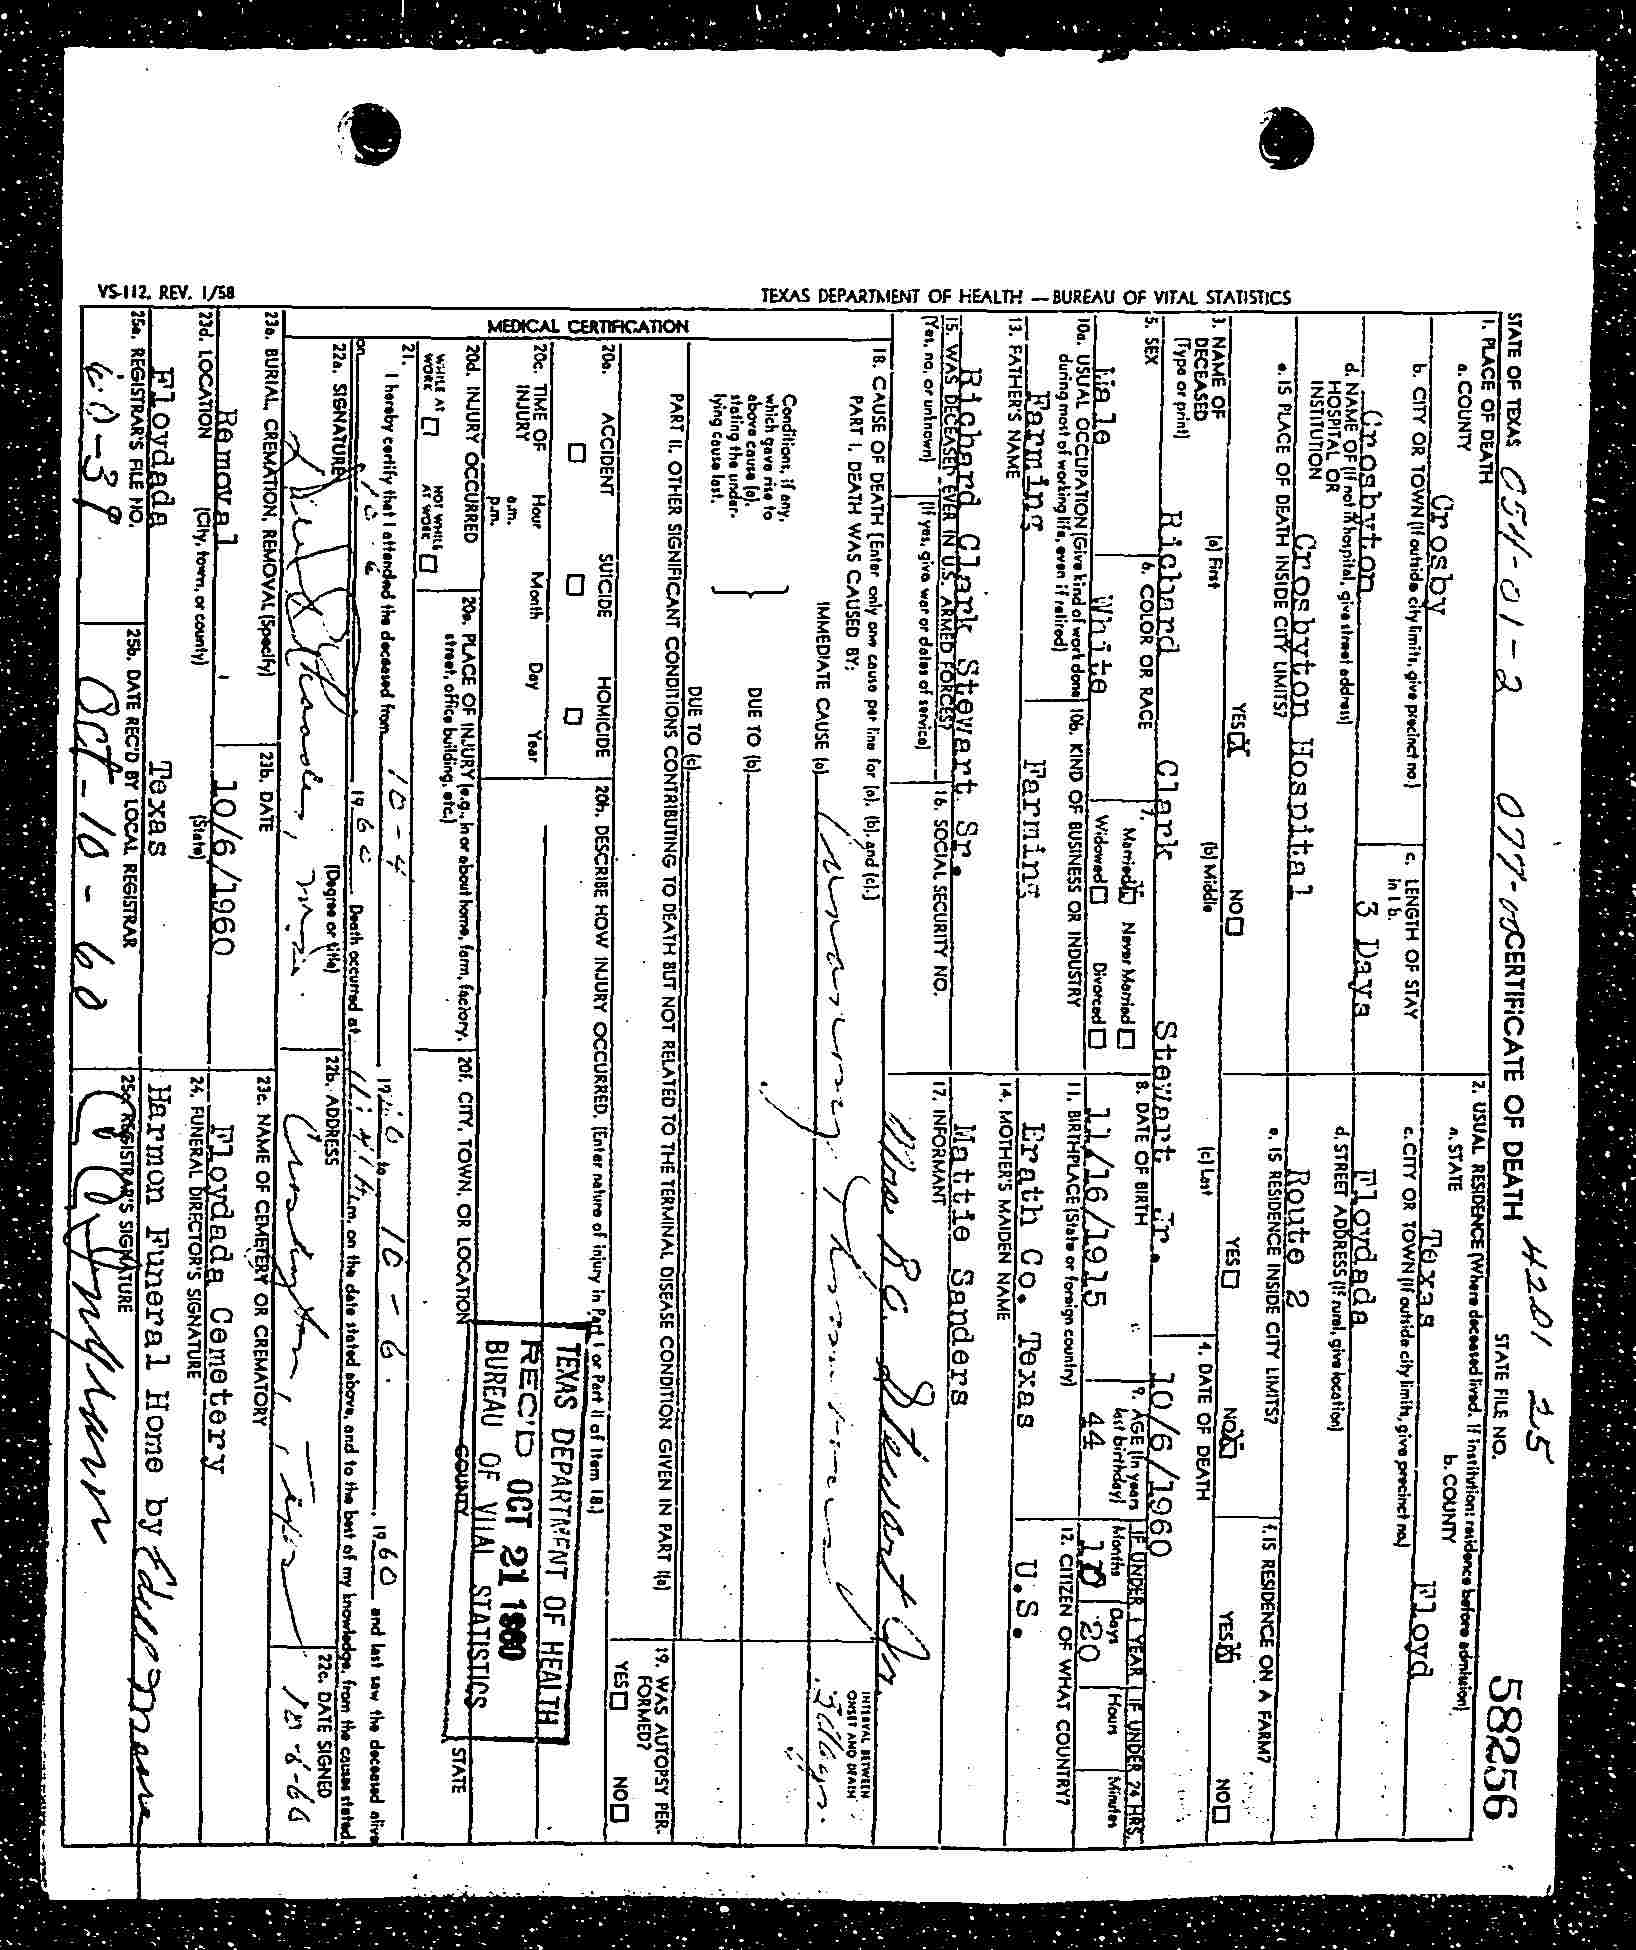 STATE OF TEXAS 054-01-2 077-05 CERTIFICATE OF DEATH 4201 25 STATE FILE NO. 58256
1. PLACE OF DEATH
a. COUNTY
Crosby
2. USUAL RESIDENCE (Where deceased lived. If institution: residence before admission)
a. STATE
Texas
b. COUNTY
Floyd
b. CITY OR TOWN (If outside city limits, give precinct no.)
Crosbyton
c. LENGTH OF STAY in 1 b.
3 Days
c. CITY OR TOWN (If outside city limits, give precinct no.)
Floydada
d. NAME OF (If not in hospital, give street address)
HOSPITAL OR
INSTITUTION
Crosbyton Hospital
d. STREET ADDRESS (If rural, give location)
Route 2
e. IS PLACE OF DEATH INSIDE CITY LIMITS?
YES X NO
e. IS RESIDENCE INSIDE CITY LIMITS?
YES NO X
f. IS RESIDENCE ON A FARM?
YES X NO
3. NAME OF
DECEASED
(Type or print)
(a) First
Richard
(b) Middle
Clark
(c) Last
Stewart Jr.
4. DATE OF DEATH
10/6/1960
5. SEX
Male
6. COLOR OR RACE
White
7.
Married X Never Married
Widowed Divorced
8. DATE OF BIRTH
11/16/1915
9. AGE (In years last birthday)
44
IF UNDER 1 YEAR
Months Days
10 20
IF UNDER 24 HRS.
Hours Minutes
10a. USUAL OCCUPATION (Give kind of work done during most of working life, even if retired)
Farming
10b. KIND OF BUSINESS OR INDUSTRY
Farming
11. BIRTHPLACE (State or foreign country)
Erath Co. Texas
12. CITIZEN OF WHAT COUNTRY?
U.S.
13. FATHER'S NAME
Richard Clark Stewart Sr.
14. MOTHER'S MAIDEN NAME
Mattie Sanders
15. WAS DECEASED EVER IN U.S. ARMED FORCES?
(Yes, no, or unknown) (If yes, give war or dates of service)
16. SOCIAL SECURITY NO.
17. INFORMANT
Mrs R.C. Stewart Jr.
MEDICAL CERTIFICATION
18. CAUSE OF DEATH (Enter only one cause per line for (a), (b), and (c).)
PART I. DEATH WAS CAUSED BY:
IMMEDIATE CAUSE (a) Coronary Thrombosis
INTERVAL BETWEEN ONSET AND DEATH
3 days.
Conditions, if any, which gave rise to above cause (a), stating the underlying cause last.
DUE TO (b)
DUE TO (c)
PART II. OTHER SIGNIFICANT CONDITIONS CONTRIBUTING TO DEATH BUT NOT RELATED TO THE TERMINAL DISEASE CONDITION GIVEN IN PART I(a)
19. WAS AUTOPSY PERFORMED?
YES NO
20a. ACCIDENT SUICIDE HOMICIDE
20b. DESCRIBE HOW INJURY OCCURRED. (Enter nature of injury in Part I or Part II of item 18.)
20c. TIME OF INJURY
Hour Month Day Year
a.m.
p.m.
20d. INJURY OCCURRED
WHILE AT WORK NOT WHILE AT WORK
20e. PLACE OF INJURY (e.g., in or about home, farm, factory, street, office building, etc.)
20f. CITY, TOWN, OR LOCATION COUNTY STATE
TEXAS DEPARTMENT OF HEALTH
REC'D OCT 21 1960
BUREAU OF VITAL STATISTICS
21. I hereby certify that I attended the deceased from 10-4 1960 to 10-6. 1960 and last saw the deceased alive
on 10-6 1960 Death occurred at 11:41 A.m. on the date stated above, and to the best of my knowledge, from the causes stated.
22a. SIGNATURE
(Degree or title)
M.D.
22b. ADDRESS
Crosbyton, Texas
22c. DATE SIGNED
10-8-60
23a. BURIAL, CREMATION, REMOVAL (Specify)
Removal
23b. DATE
10/6/1960
23c. NAME OF CEMETERY OR CREMATORY
Floydada Cemetery
23d. LOCATION (City, town, or county) (State)
Floydada Texas
24. FUNERAL DIRECTOR'S SIGNATURE
Harmon Funeral Home by
25a. REGISTRAR'S FILE NO.
60-39
25b. DATE REC'D BY LOCAL REGISTRAR
Oct-10-60
25c. REGISTRAR'S SIGNATURE
VS-112. REV. 1/58
TEXAS DEPARTMENT OF HEALTH — BUREAU OF VITAL STATISTICS